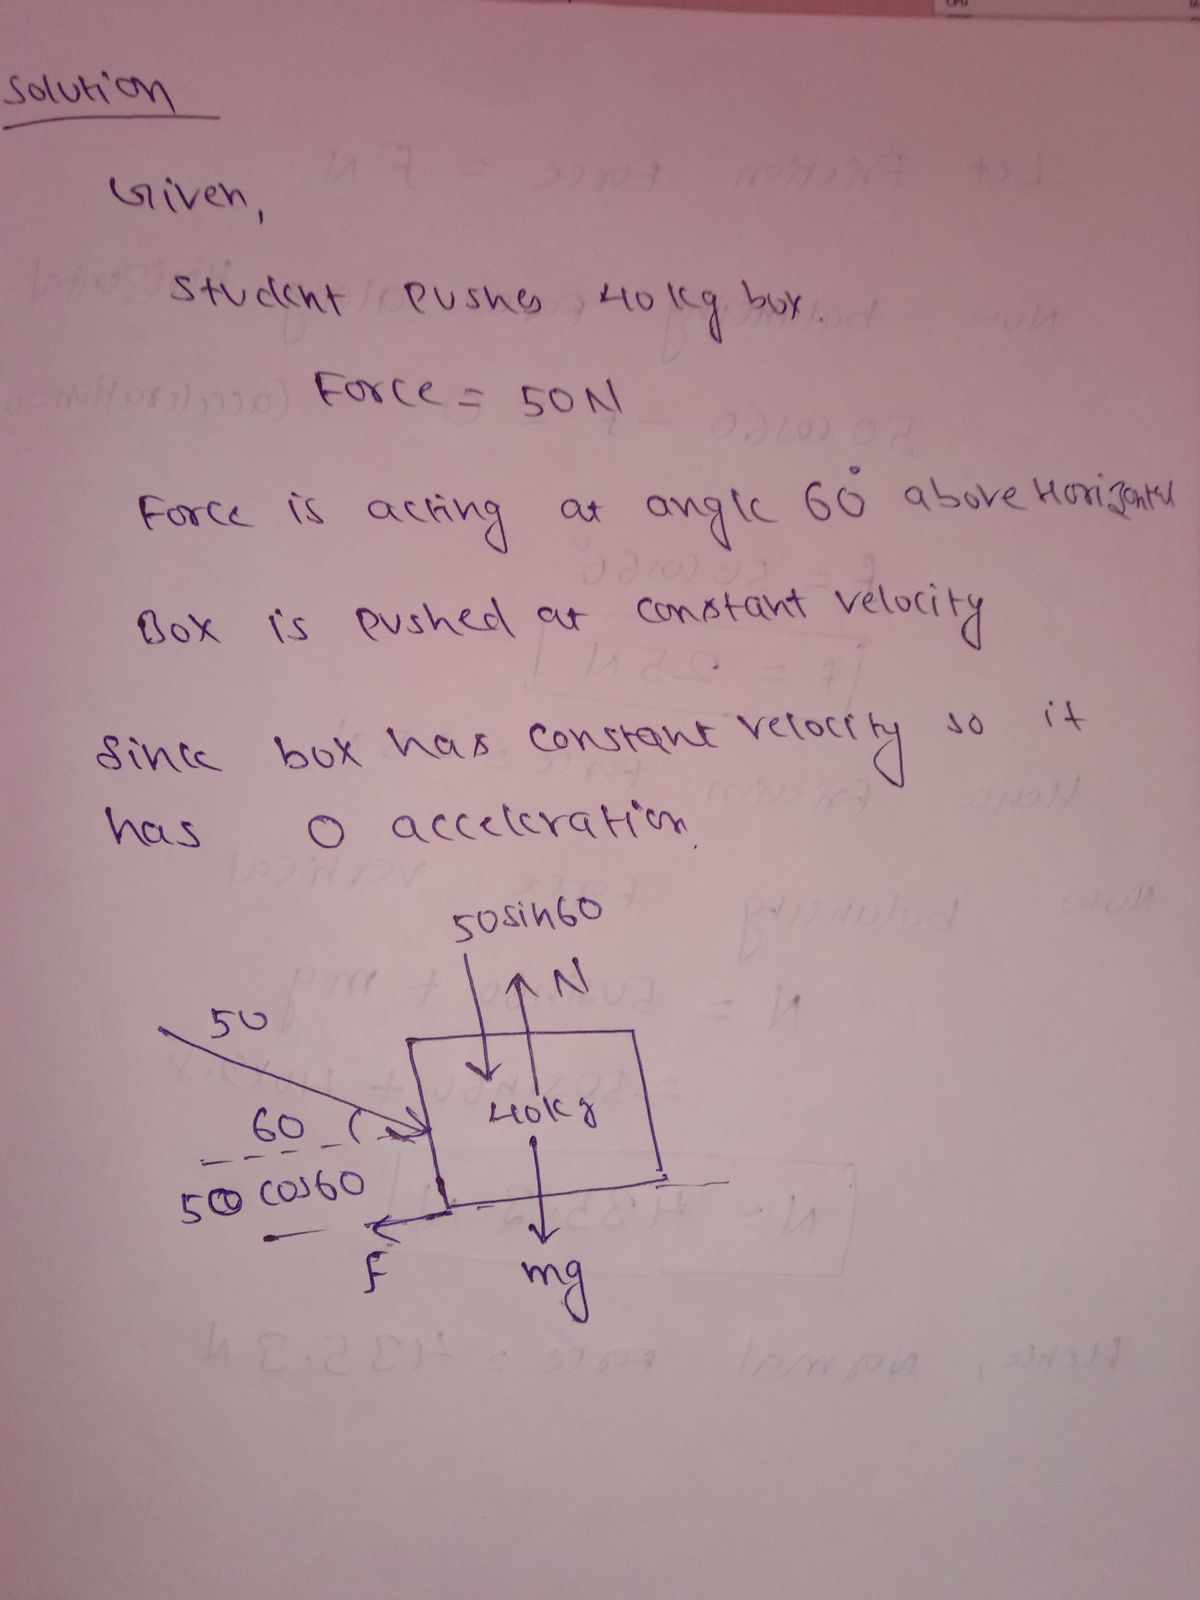 Solution
Given,
Student pushes 40kg box.
Force = 50N
Force is acting at angle 60° above Horizontal
Box is pushed at constant velocity
Since box has constant velocity so it
has 0 acceleration.
50sin60
N
50
60
40kg
50 cos60
F
mg